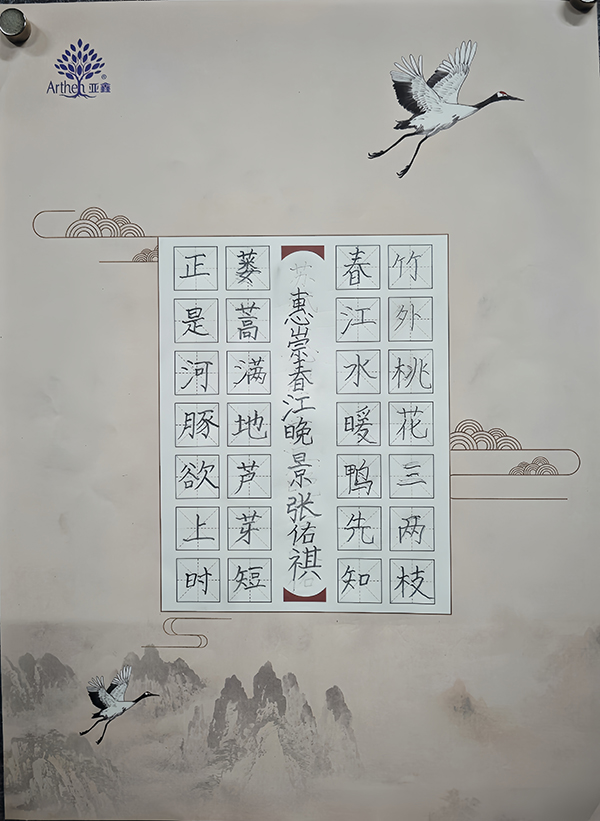 Arthen 亚鑫®
竹外桃花三两枝
春江水暖鸭先知
惠崇春江晚景张佑祺
蒌蒿满地芦芽短
正是河豚欲上时